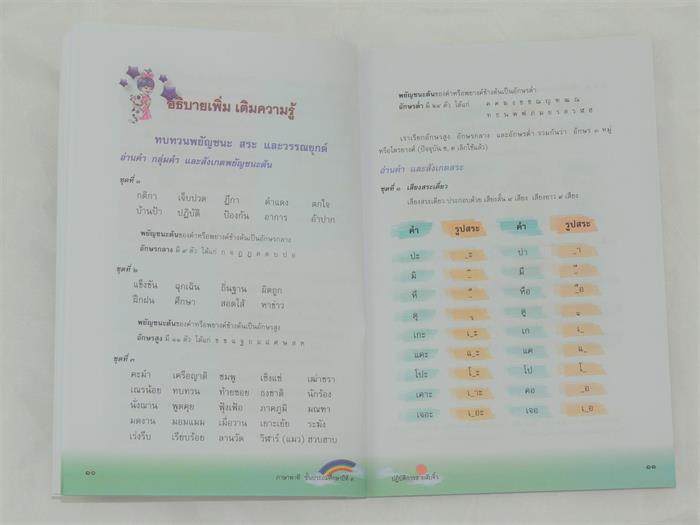 อธิบายเพิ่ม เติมความรู้
ทบทวนพยัญชนะ สระ และวรรณยุกต์
อ่านคำ กลุ่มคำ และสังเกตพยัญชนะต้น
ชุดที่ ๑
กติกา เจ็บปวด ฎีกา ดำแดง ตกใจ
บ้านป้า ปฏิบัติ ป้องกัน อาการ อ้าปาก
พยัญชนะต้นของคำหรือพยางค์ข้างต้นเป็นอักษรกลาง
อักษรกลาง มี ๙ ตัว ได้แก่ ก จ ฎ ฏ ด ต บ ป อ
ชุดที่ ๒
แข็งขัน ฉุกเฉิน ถิ่นฐาน ผิดถูก
ฝึกฝน ศึกษา สอดใส้ หาข่าว
พยัญชนะต้นของคำหรือพยางค์ข้างต้นเป็นอักษรสูง
อักษรสูง มี ๑๑ ตัว ได้แก่ ข ฃ ฉ ฐ ถ ผ ฝ ศ ษ ส ห
ชุดที่ ๓
คะมำ เครือญาติ ชมพู เชิงแข่ เฒ่าชรา
เณรน้อย ทบทวน ท้ายซอย ธงชาติ นักร้อง
นั่งฌาน พูดคุย ฟุ้งเฟ้อ ภาคภูมิ มณฑา
มดงาน มอมแมม เมื่อวาน เยาะเย้ย ระฆัง
เร่งรีบ เรียบร้อย ลานวัด วิฬาร์ (แมว) ฮวบฮาบ
๑๐
ภาษาพาที ชั้นประถมศึกษาปีที่ ๓
พยัญชนะต้นของคำหรือพยางค์ข้างต้นเป็นอักษรต่ำ
อักษรต่ำ มี ๒๔ ตัว ได้แก่ ค ฅ ฆ ง ช ซ ฌ ญ ฑ ฒ ณ
ท ธ น พ ฟ ภ ม ย ร ล ว ฬ ฮ
เราเรียกอักษรสูง อักษรกลาง และอักษรต่ำ รวมกันว่า อักษร ๓ หมู่
หรือไตรยางศ์ (ปัจจุบัน ฃ, ฅ เลิกใช้แล้ว)
อ่านคำ และสังเกตสระ
ชุดที่ ๑ เสียงสระเดี่ยว
เสียงสระเดี่ยว ประกอบด้วย เสียงสั้น ๙ เสียง เสียงยาว ๙ เสียง
คำ รูปสระ คำ รูปสระ
ปะ _ะ ปา _า
มิ _ิ มี _ี
หึ _ึ หือ _ือ
ดุ _ุ ดู _ู
เกะ เ_ะ เก เ_
แคะ แ_ะ แค แ_
โปะ โ_ะ โป โ_
เคาะ เ_าะ คอ _อ
เจอะ เ_อะ เจอ เ_อ
ปฏิบัติการสายลับจิ๋ว
๑๑